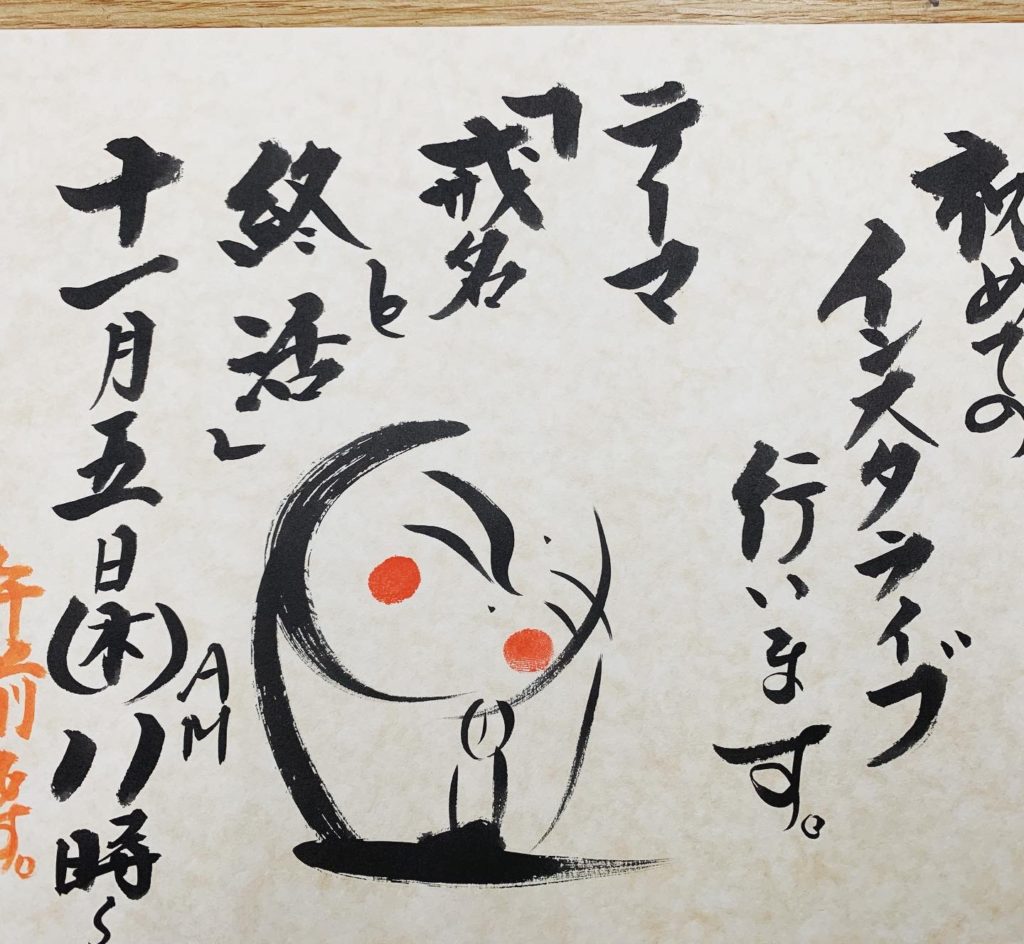 初めての
インスタライブ
行います。
テーマ
「戒名
と
終活」
十一月五日(木)八時〜
AM
午前です。